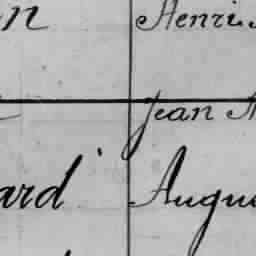 n Henri
Jean
ard Augu